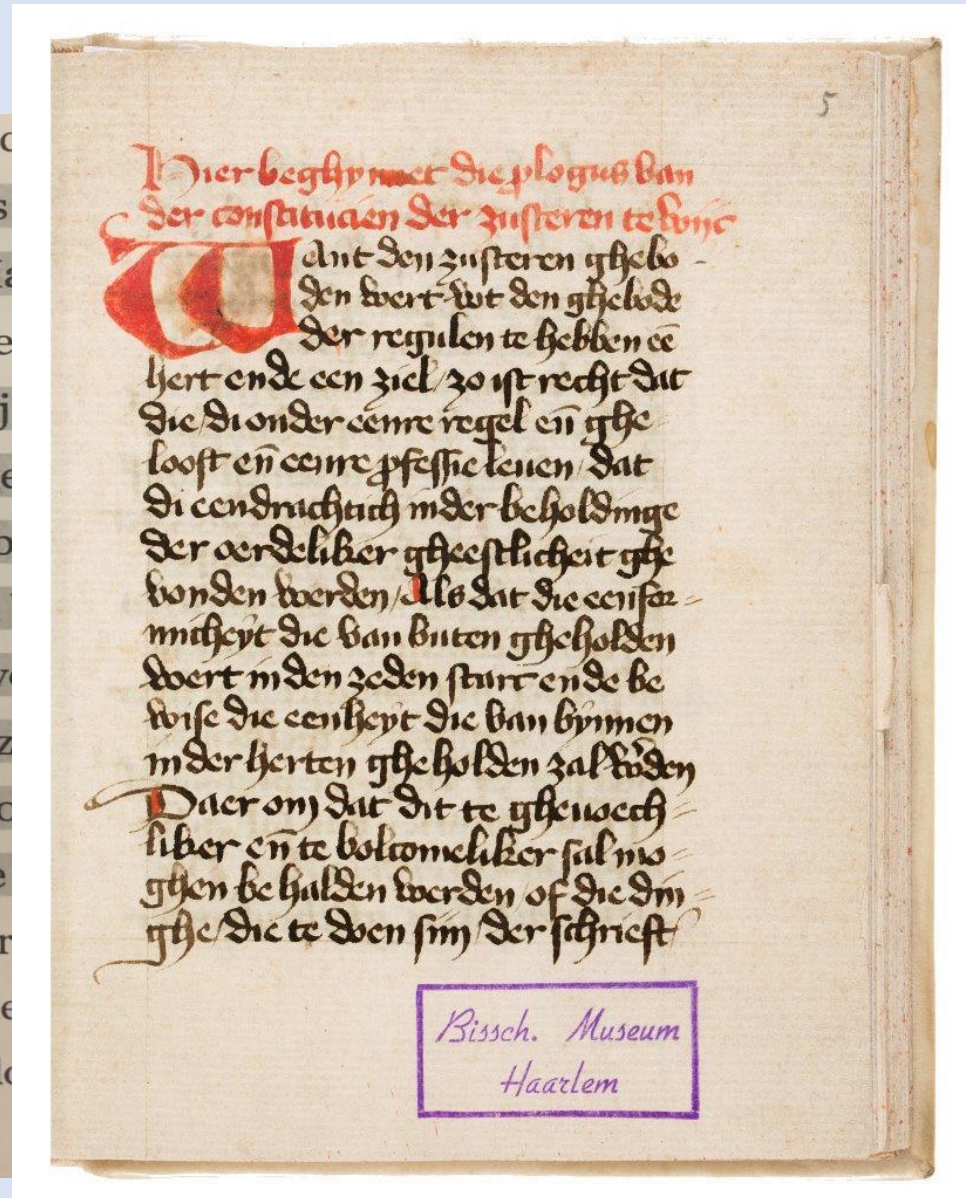 5
Hier beghynnet die plogus van
der constitucien der zusteren te wijc
Want den zusteren ghebo-
den wert wt den ghebode
der regulen te hebben eē
hert ende een ziel/ zo ist recht dat
die/ di onder eenre regel en̄ ghe
looft en̄ eenre pfessie leuen/ dat
di eendrachtich in der beholdinge
der oerdeliker gheestlicheit ghe
vonden werden/ Als dat die eenfor=
micheyt die van buten gheholden
wert in den zeden starc ende be
wise die eenheyt die van bynnen
in der herten gheholden zal w̄den
Daer om dat dit te gheuoech=
liker en̄ te volcomeliker sal mo=
ghen be halden werden/ of die din=
ghe/ die te doen sijn/ der schrieft/
Bissch. Museum
Haarlem